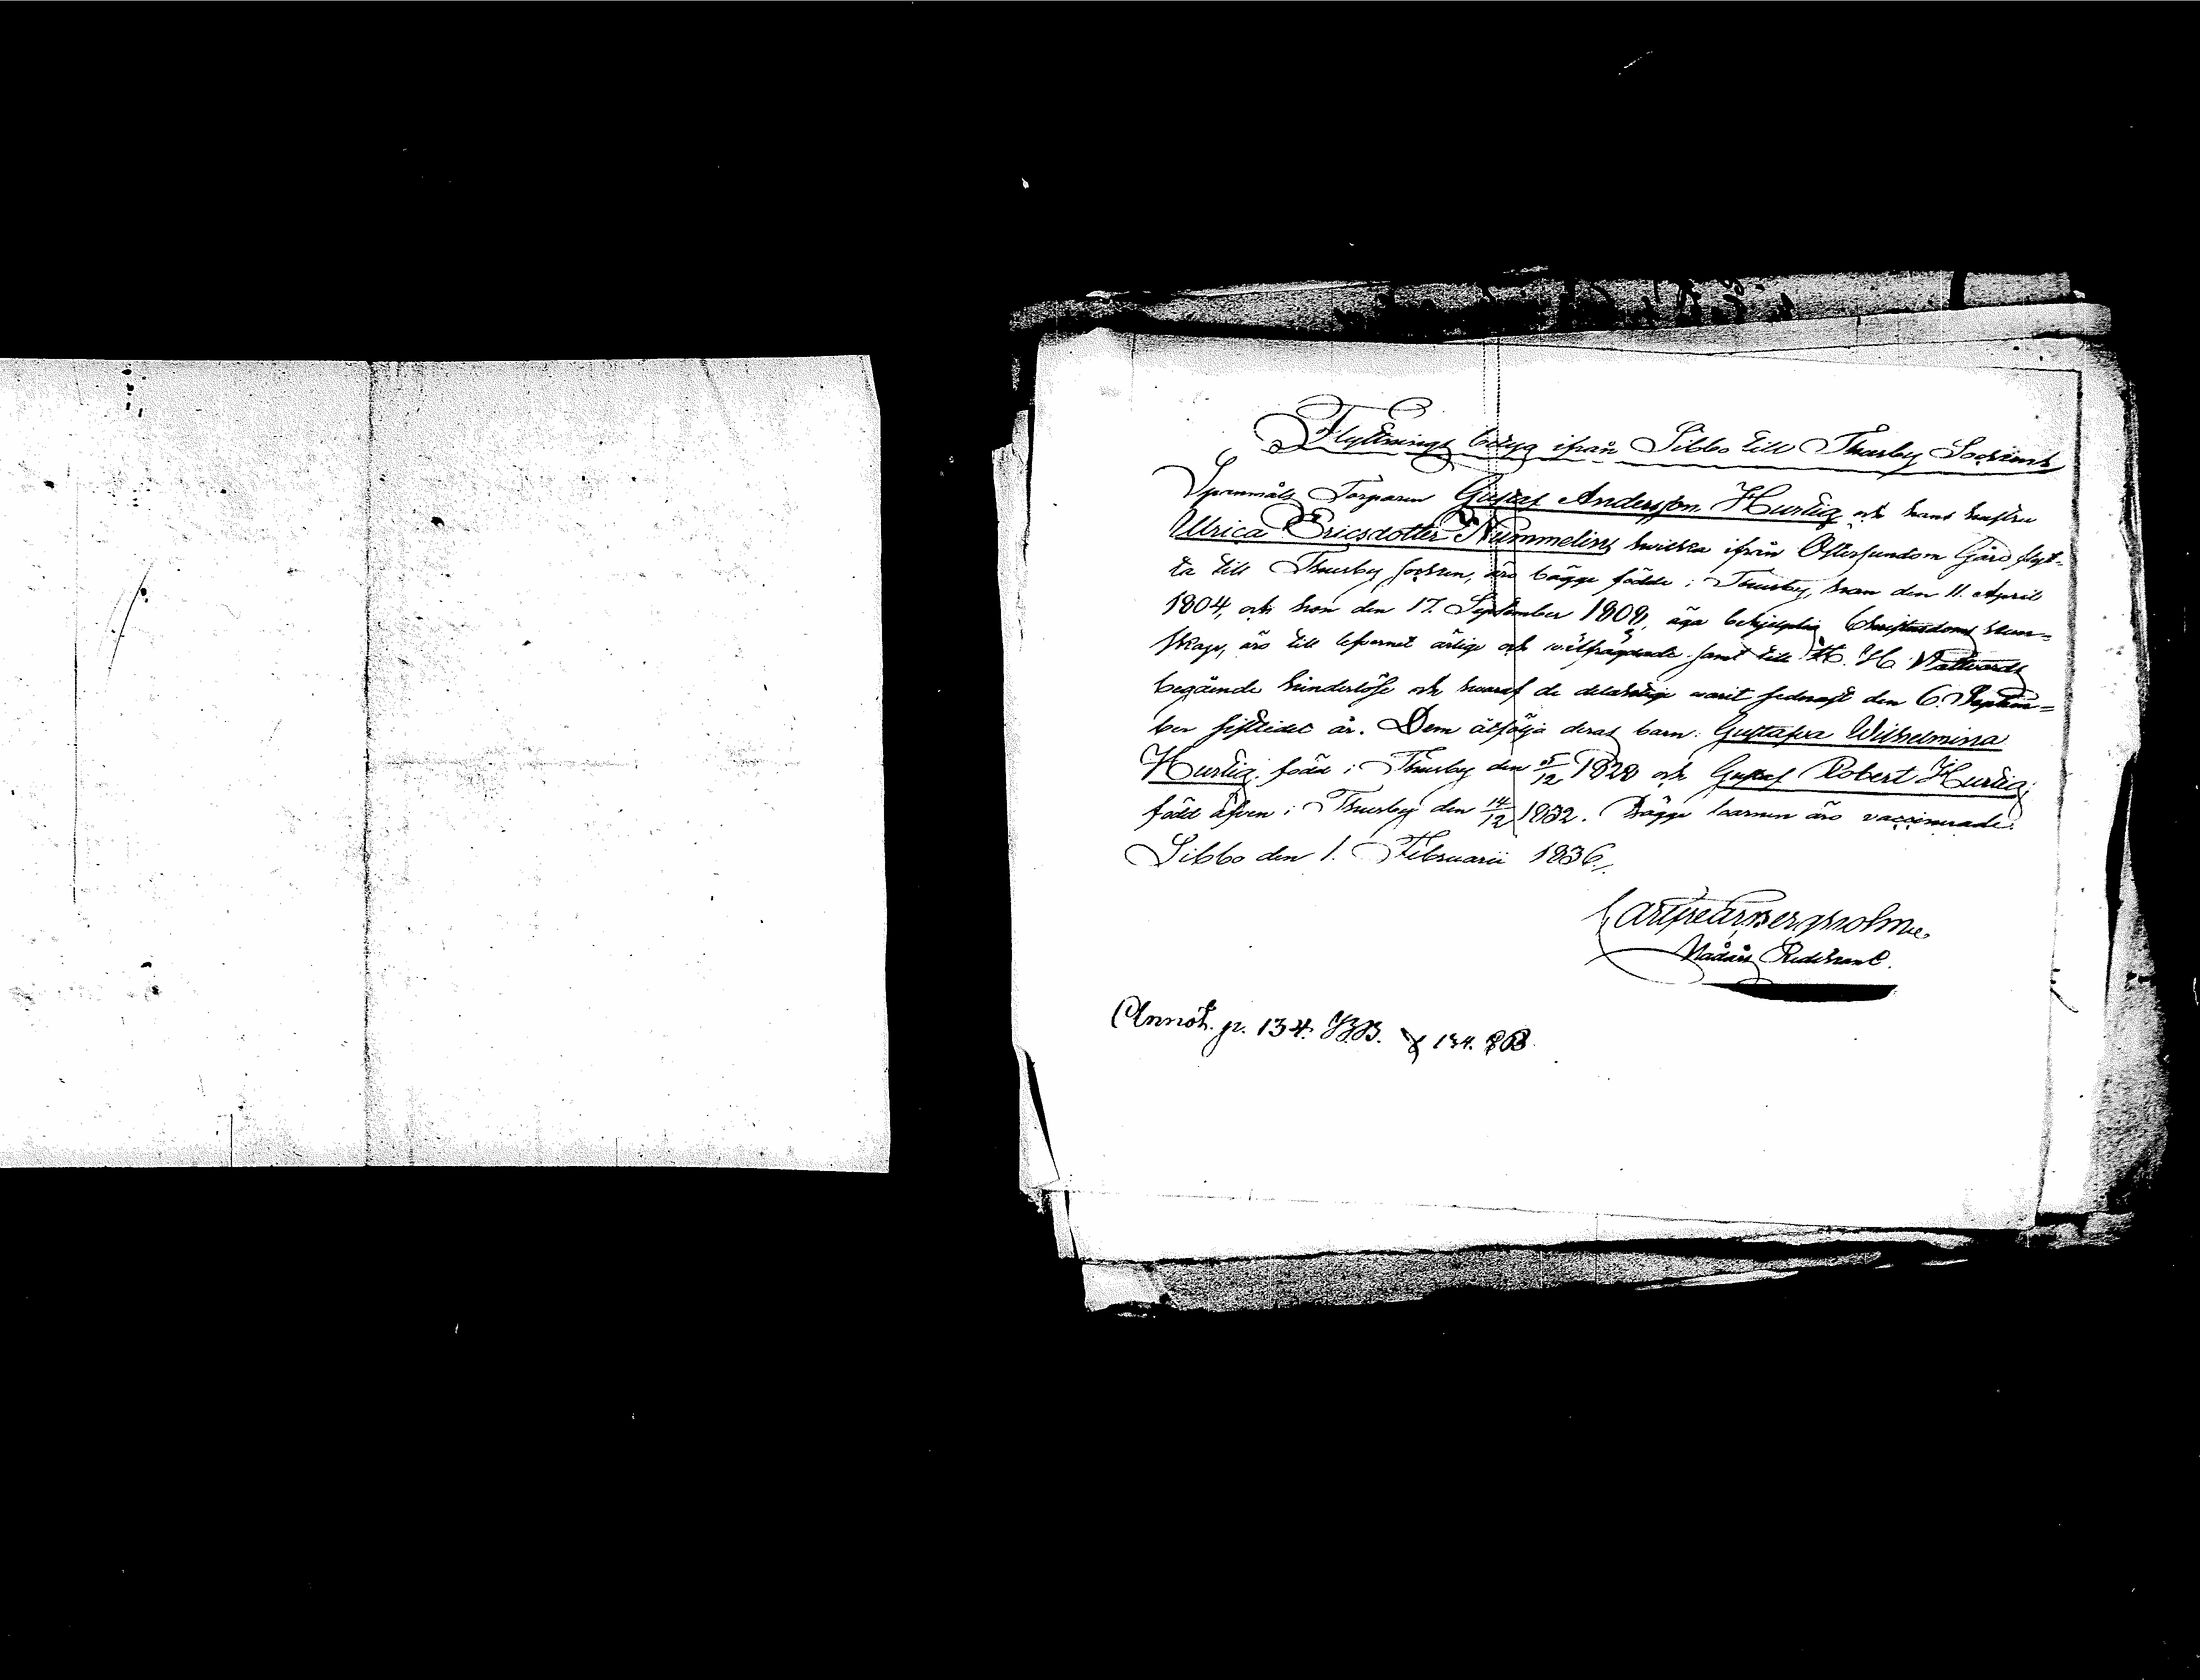 Flyttnings betyg ifrån Sibbo till Thusby Sockens
Spannmåls Torparen Gustaf Andersson Hurtig och hans hustru
Ulrica Ericsdotter Nummelin, hwilka ifrån Östersundom Gård flyt-
ta till Thusby socken, äro bägge födde i Thusby, han den 11. April
1804, och hon den 17. September 1808, äga behjelplig Christendoms kun-
skap, äro till lefvernet ärlige och wälfrägdade samt till H. H. Nattvards
begående hinderlöse och hwaraf de delaktige warit sednast den 6. Septem-
ber sistledit år. Dem åtfölja deras barn: Gustafva Wilhelmina
Hurtig, född i Thusby den 5/12 1828 och Gustaf Robert Hurtig,
född äfven i Thusby den 14/12 1832. Bägge barnen äro vaccinerade.
Sibbo den 1. Februarii 1836.
Carl Bergholm
Nådårs Predikant.
Annot. p. 134. & 134.